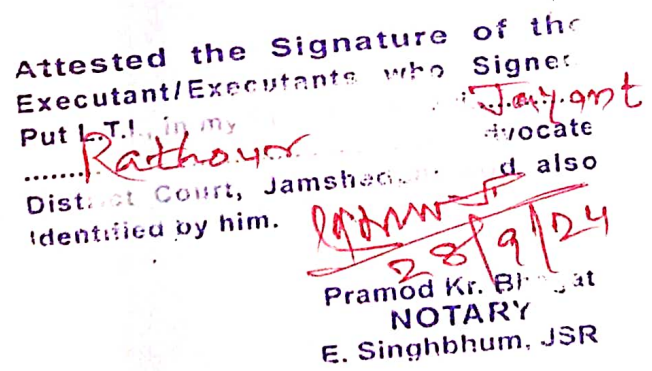 Attested the Signature of the
Executant/Executants who Signed
Put L.T.I. in my Jayant
........Rathour Advocate
District Court, Jamshed d also
Identified by him.
28/9/24
Pramod Kr. Bhagat
NOTARY
E. Singhbhum, JSR